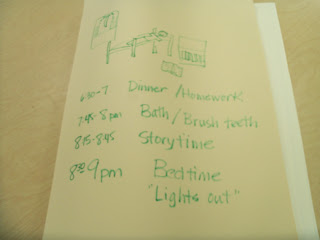 6:30-7 Dinner/Homework
7:45-8pm Bath/Brush teeth
8:15-8:45 Storytime
8:50 9pm Bedtime
"Lights out"